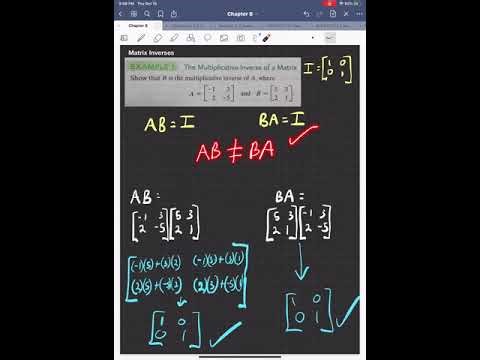 Chapter 8
Chapter 8
Matrix Inverses
EXAMPLE 1 The Multiplicative Inverse of a Matrix
Show that B is the multiplicative inverse of A, where
A = [-1 3
2 -5] and B = [5 3
2 1]
I = [1 0
0 1]
AB = I BA = I
AB ≠ BA ✓
AB =
[-1 3
2 -5] [5 3
2 1]
[(-1)(5)+(3)(2) (-1)(3)+(3)(1)
(2)(5)+(-5)(2) (2)(3)+(-5)(1)]
[1 0
0 1] ✓
BA =
[5 3
2 1] [-1 3
2 -5]
[1 0
0 1] ✓